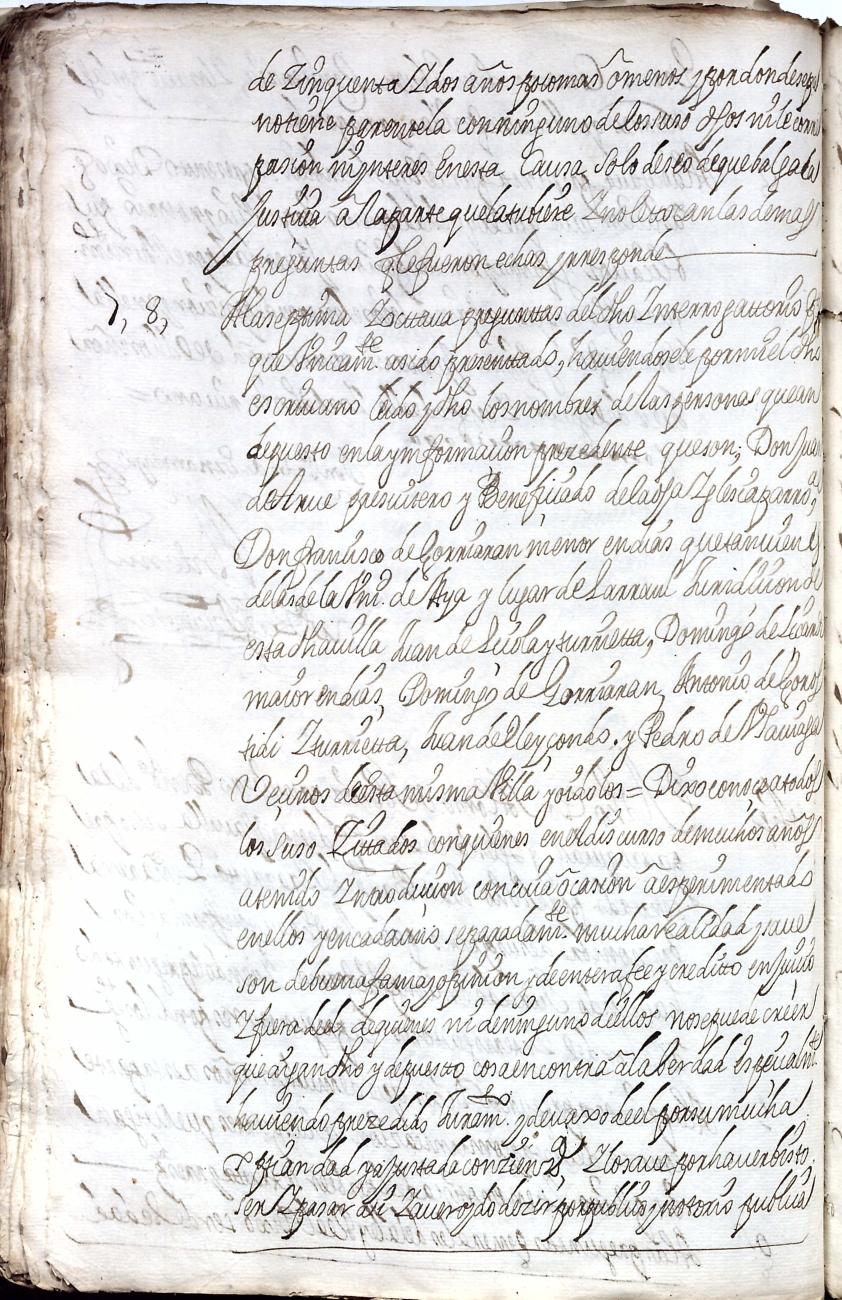 de Zinquenta Y dos años poco mas ô menos y por donde sepa
no tiene parentela con ninguno de los suso dhos ni le corre
pasion ni ynteres en esta Causa solo deseo de que halga la
Justicia â la parte que la tubiere Y no le tocan las demas
preguntas q̃ le fueron echas y responde
7, 8, A la septima Y octtava preguttas del dho Ynterrogattorio
que Unicamte. a sido presentado, haviendosele por mi el dho
escrivano leido y dho los nombres de las personas que an
depuesto en la ynformacion prezedente que son, Don Juan
de Arrue presvitero y Beneficiado de la dha Yglesia parroa.
Don Françisco de Gorriaran menor en dias que tanvien es
de las de la Uni. de Aya y lugar de Larraul Juridicion de
esta dha villa Juan de Liçola y Yturrietta, Domingo de
maior en dias, Domingo de Gorriaran, Antonio de Goros
tidi Yturrietta, Juan de Eleyçondo. y Pedro de
Vecinos de esta misma Villa y oidolos = Dixo conoze a todos
los suso Zittados con quienes en el discurso de muchos años
a tenido Yntroducion con cuia ôcasion â esperimentado
en ellos y en cada uno separadamte. mucha realidad y save
son de buena fama y opinion y de entera fee y creditto en Juicio
Y fuera del de quienes ni de ninguno de ellos no se puede creer
que ayan dho y depuestto cosa en contra â la berdad espeçialmte
haviendo prezedido Juramto. y devaxo de el por su mucha
xptiandad y ajustada conzienzia Y lo save por haver bisto
ser Y pasar asi Y aver oydo dezir por publico y notorio publica